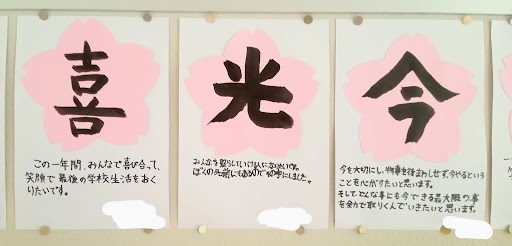 喜
この一年間、みんなで喜び合って、
笑顔で最後の学校生活をおく
りたいです。
光
みんなを照らしていける人になりたいです。
ぼくの名前にもあるのでこの字にしました。
今
今を大切にし、物事を後まわしせず、今やるという
ことを心がけたいと思います。
そして、どんな事にも今できる最大限の事
を全力で取りくんでいきたいと思います。